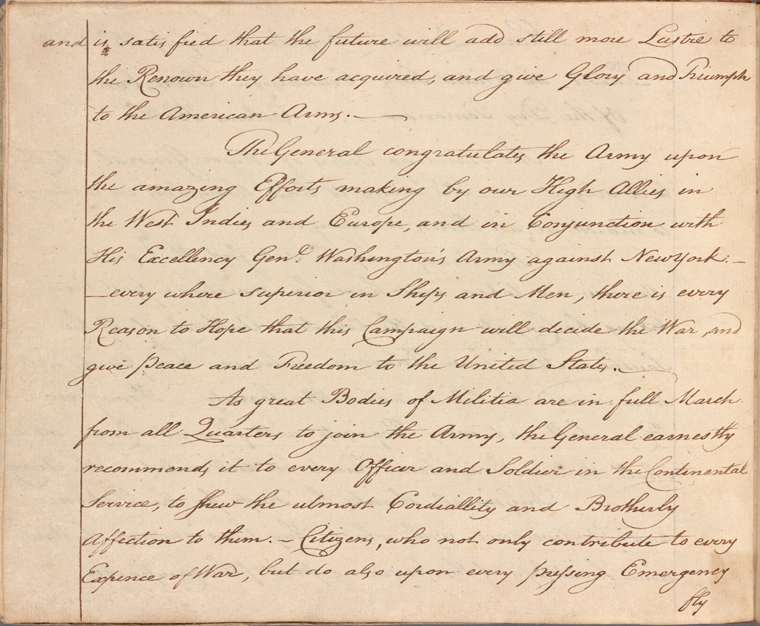 and is satisfied that the future will add still more Lustre to
the Renown they have acquired, and give Glory and Triumph
to the American Arms. —
The General congratulates the Army upon
the amazing Efforts making by our High Allies in
the West Indies and Europe, and in Conjunction with
His Excellency Genl. Washington's Army against New York. —
— every where superior in Ships and Men, there is every
Reason to Hope that this Campaign will decide the War, and
give Peace and Freedom to the United States. —
As great Bodies of Militia are in full March
from all Quarters to join the Army, the General earnestly
recommends it to every Officer and Soldier in the Continental
Service, to shew the utmost Cordiallity and Brotherly
Affection to them. — Citizens, who not only contribute to every
Expence of War, but do also upon every pressing Emergency
fly